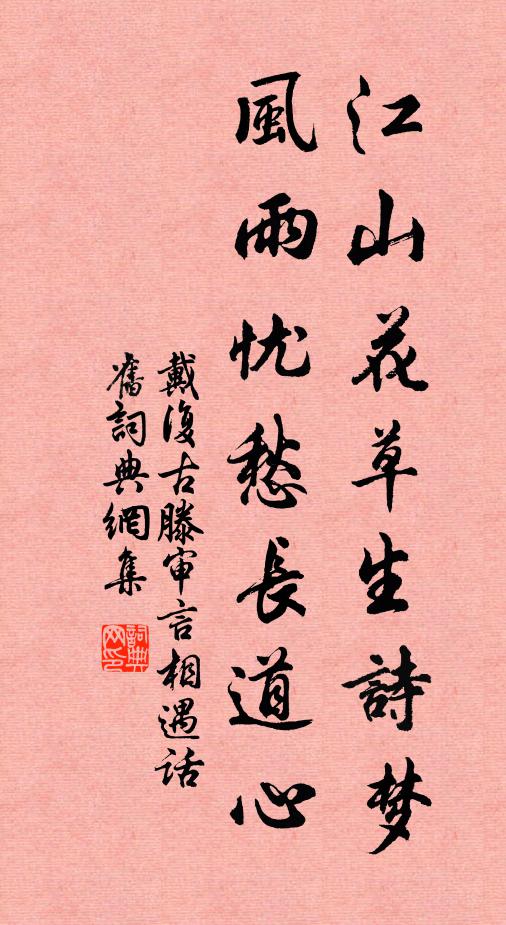 江山花草生詩梦
風雨忧愁長道心
戴復古滕审言相遇話
舊詞典網集
詞典
网印